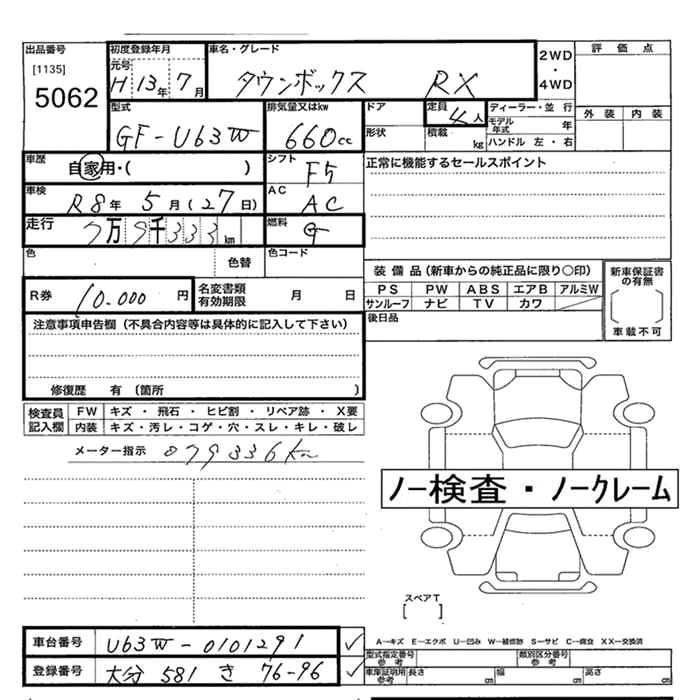 出品番号 初度登録年月 車名・グレード 2WD・4WD 評価点
[1135] 元号
5062 H 13年 7月 タウンボックス RX
型式 排気量又はkw ドア 定員 4人 ディーラー・並行 外装 内装
GF-U63W 660cc 形状 積載 kg モデル年式 年
ハンドル 左・右
車歴 自家用・( ) シフト F5 正常に機能するセールスポイント
車検 R8年 5月(27日) AC AC
走行 7万9千333km 燃料 G
色 色替 色コード
装備品(新車からの純正品に限り〇印) 新車保証書の有無
R券 10.000円 名変書類有効期限 月 日 PS PW ABS エアB アルミW
サンルーフ ナビ TV カワ
注意事項申告欄(不具合内容等は具体的に記入して下さい) 後日品 車載不可
修復歴 有(箇所 )
検査員記入欄 FW キズ・飛石・ヒビ割・リペア跡・X要
内装 キズ・汚レ・コゲ・穴・スレ・キレ・破レ
メーター指示 079336km
ノー検査・ノークレーム
スペアT
[ ]
車台番号 U63W-0101291 ✓ A－キズ E－エクボ U－凹み W－補修跡 S－サビ C－腐食 XX－交換済
型式指定番号 参考 類別区分番号 参考
登録番号 大分 581 き 76-96 ✓ 車庫証明用 参考 長さ cm 幅 cm 高さ cm